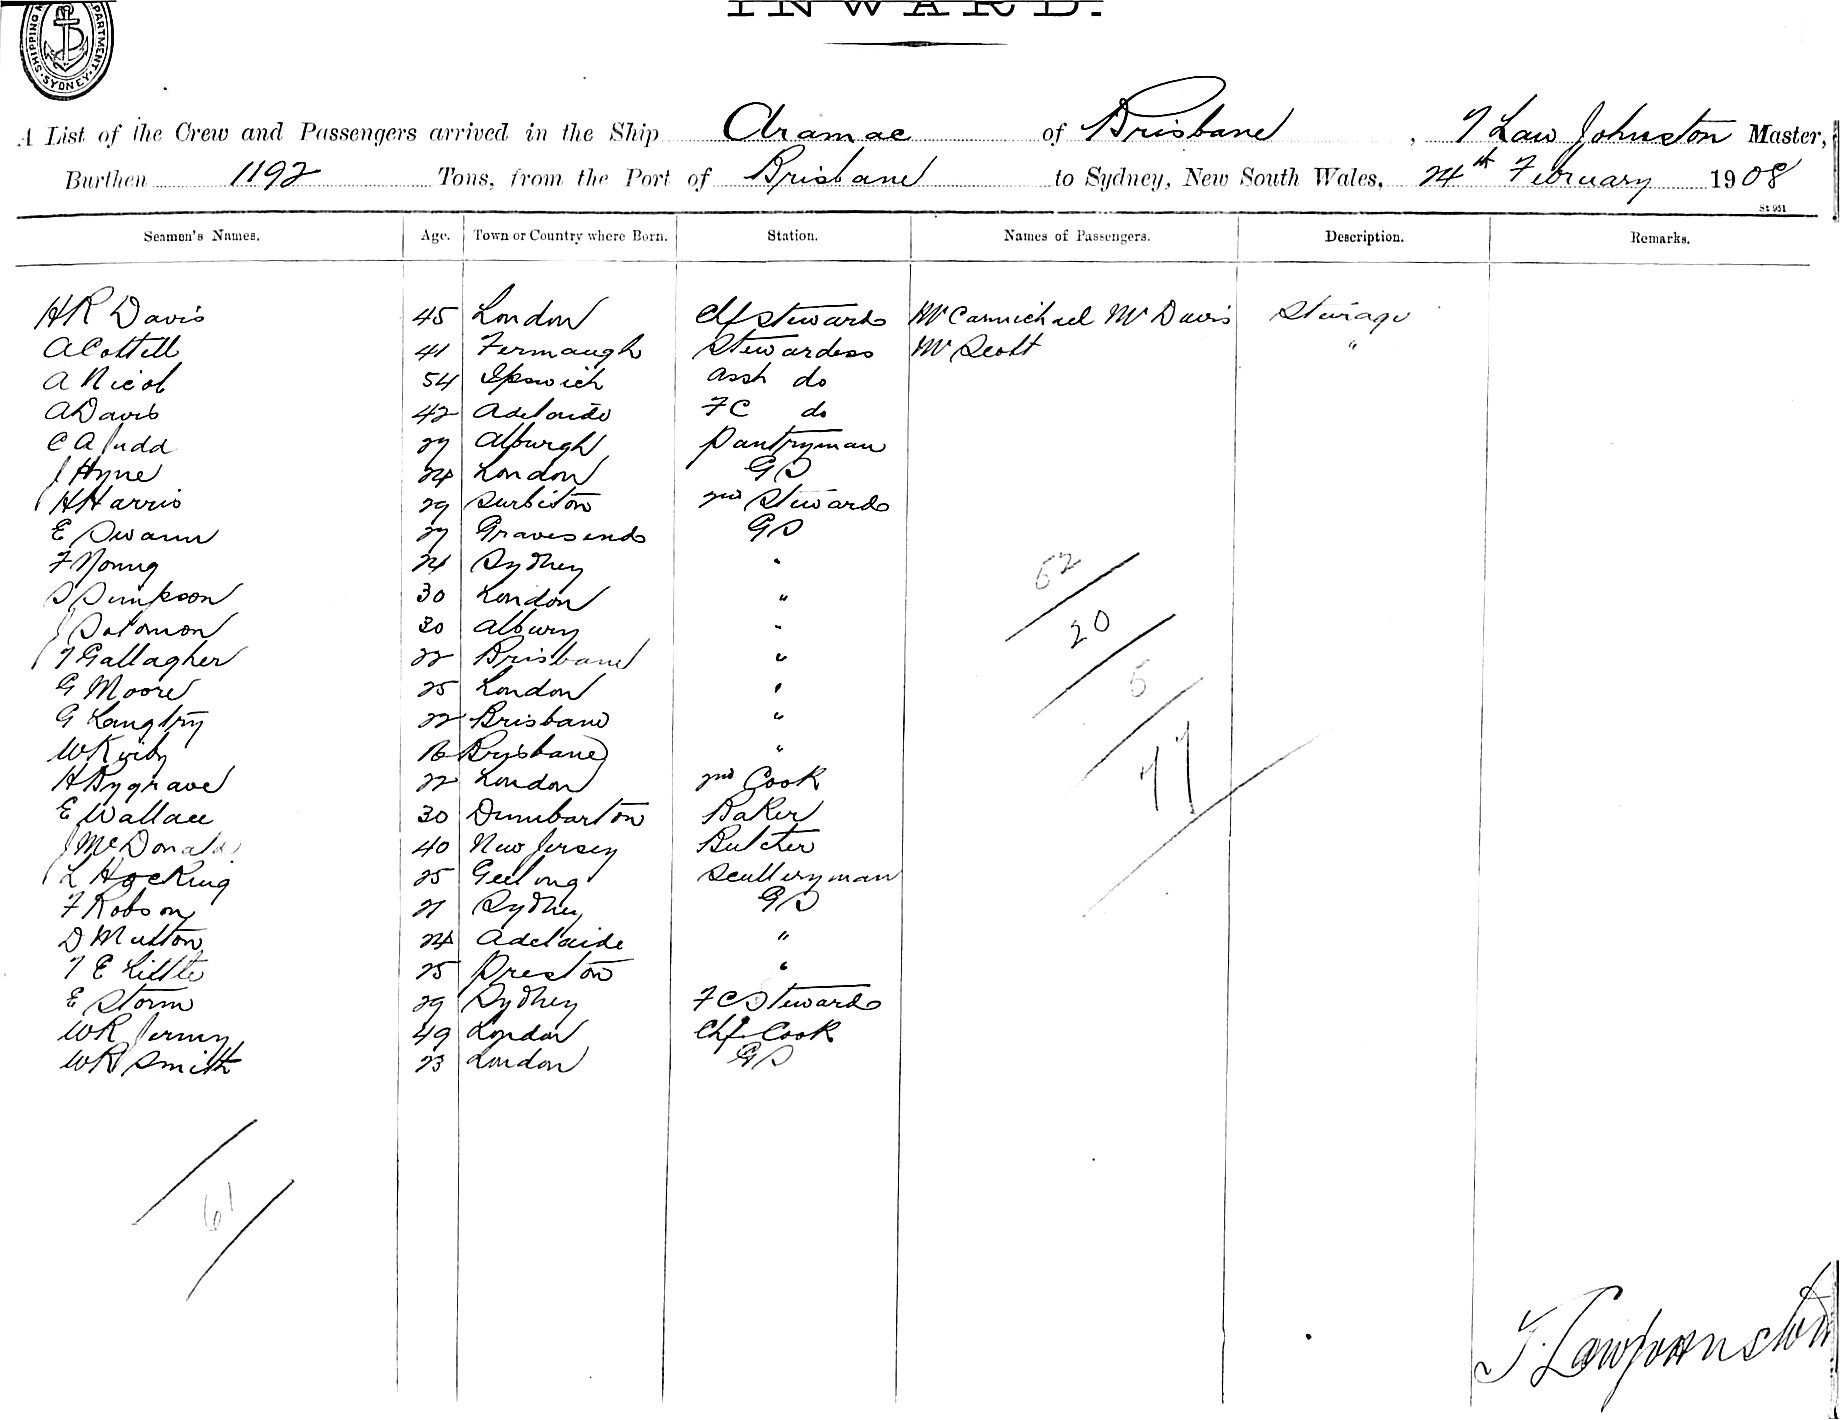 INWARD.
SHIPPING DEPARTMENT SYDNEY
A List of the Crew and Passengers arrived in the Ship Aramac of Brisbane, T Law Johnston Master,
Burthen 1192 Tons, from the Port of Brisbane to Sydney, New South Wales, 24th February 1908
St 951
Seamen's Names. Age. Town or Country where Born. Station. Names of Passengers. Description. Remarks.
H R Davis 45 London Chf Steward Mr Carmichael Mr Davis Steerage
A Cottell 41 Fermaugh Stewardess Mr Scott "
A Nicol 54 Ipswich Asst do
A Davis 42 Adelaide F C do
C A Judd 27 Alburgh Pantryman
J Hyne 24 London G S
H Harris 29 Surbiton 2nd Steward
E Swann 27 Gravesend G S
F Young 21 Sydney "
S Simpson 30 London "
J Solomon 30 Albury "
T Gallagher 22 Brisbane "
G Moore 25 London "
G Langtry 22 Brisbane "
W Kirby 18 Brisbane "
H Bygrave 22 London 2nd Cook
E Wallace 30 Dumbarton Baker
J McDonald 40 New Jersey Butcher
L Hocking 25 Geelong Sculleryman
F Robson 21 Sydney G S
D Mutton 24 Adelaide "
T E Little 25 Preston "
E Storm 29 Sydney F C Steward
W R Jermy 49 London Chf Cook
W R Smith 23 London G S
52
20
5
77
61
T. Law Johnston